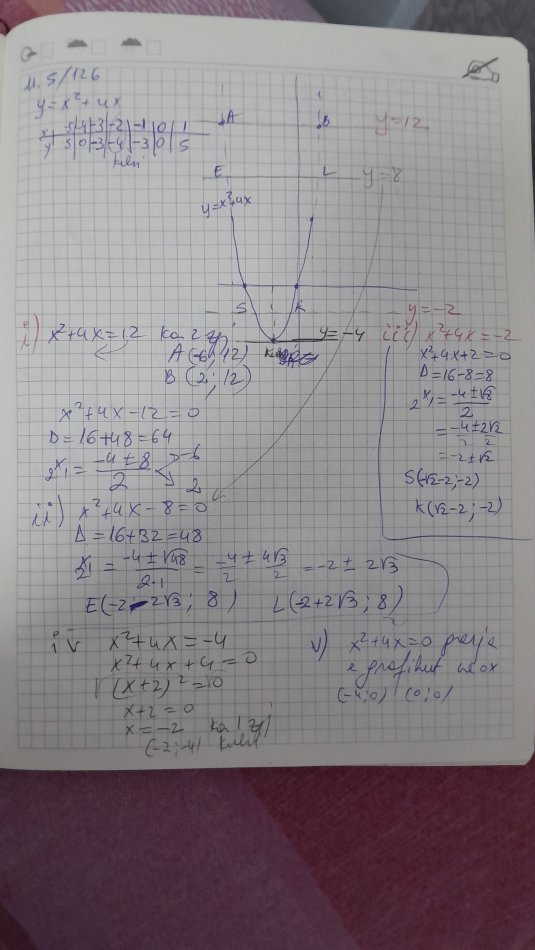 U. 5/126
y = x² + 4x
x | -5 | -4 | -3 | -2 | -1 | 0 | 1
y | 5 | 0 | -3 | -4 | -3 | 0 | 5
kulmi
A B y = 12
E L y = 8
y = x² + 4x
S K y = -2
y = -4
i) x² + 4x = 12 ka 2 zgj
A (-6; 12)
B (2; 12)
x² + 4x - 12 = 0
D = 16 + 48 = 64
2x1 = -4 ± 8 / 2 -6 2
ii) x² + 4x - 8 = 0
Δ = 16 + 32 = 48
x 2 1 = -4 ± √48 / 2·1 = -4 ± 4√3 / 2 = -2 ± 2√3
E(-2 - 2√3; 8) L(-2 + 2√3; 8)
iii) x² + 4x = -2
x² + 4x + 2 = 0
Δ = 16 - 8 = 8
2x1 = -4 ± √8 / 2
= -4 ± 2√2 / 2
= -2 ± √2
S(-√2 - 2; -2)
K(√2 - 2; -2)
iv x² + 4x = -4
x² + 4x + 4 = 0
√(x + 2)² = 0
x + 2 = 0
x = -2 ka 1 zgj
(-2; -4) kulmi
v) x² + 4x = 0 prerja
e grafikut me ox
(-4; 0) (0; 0)